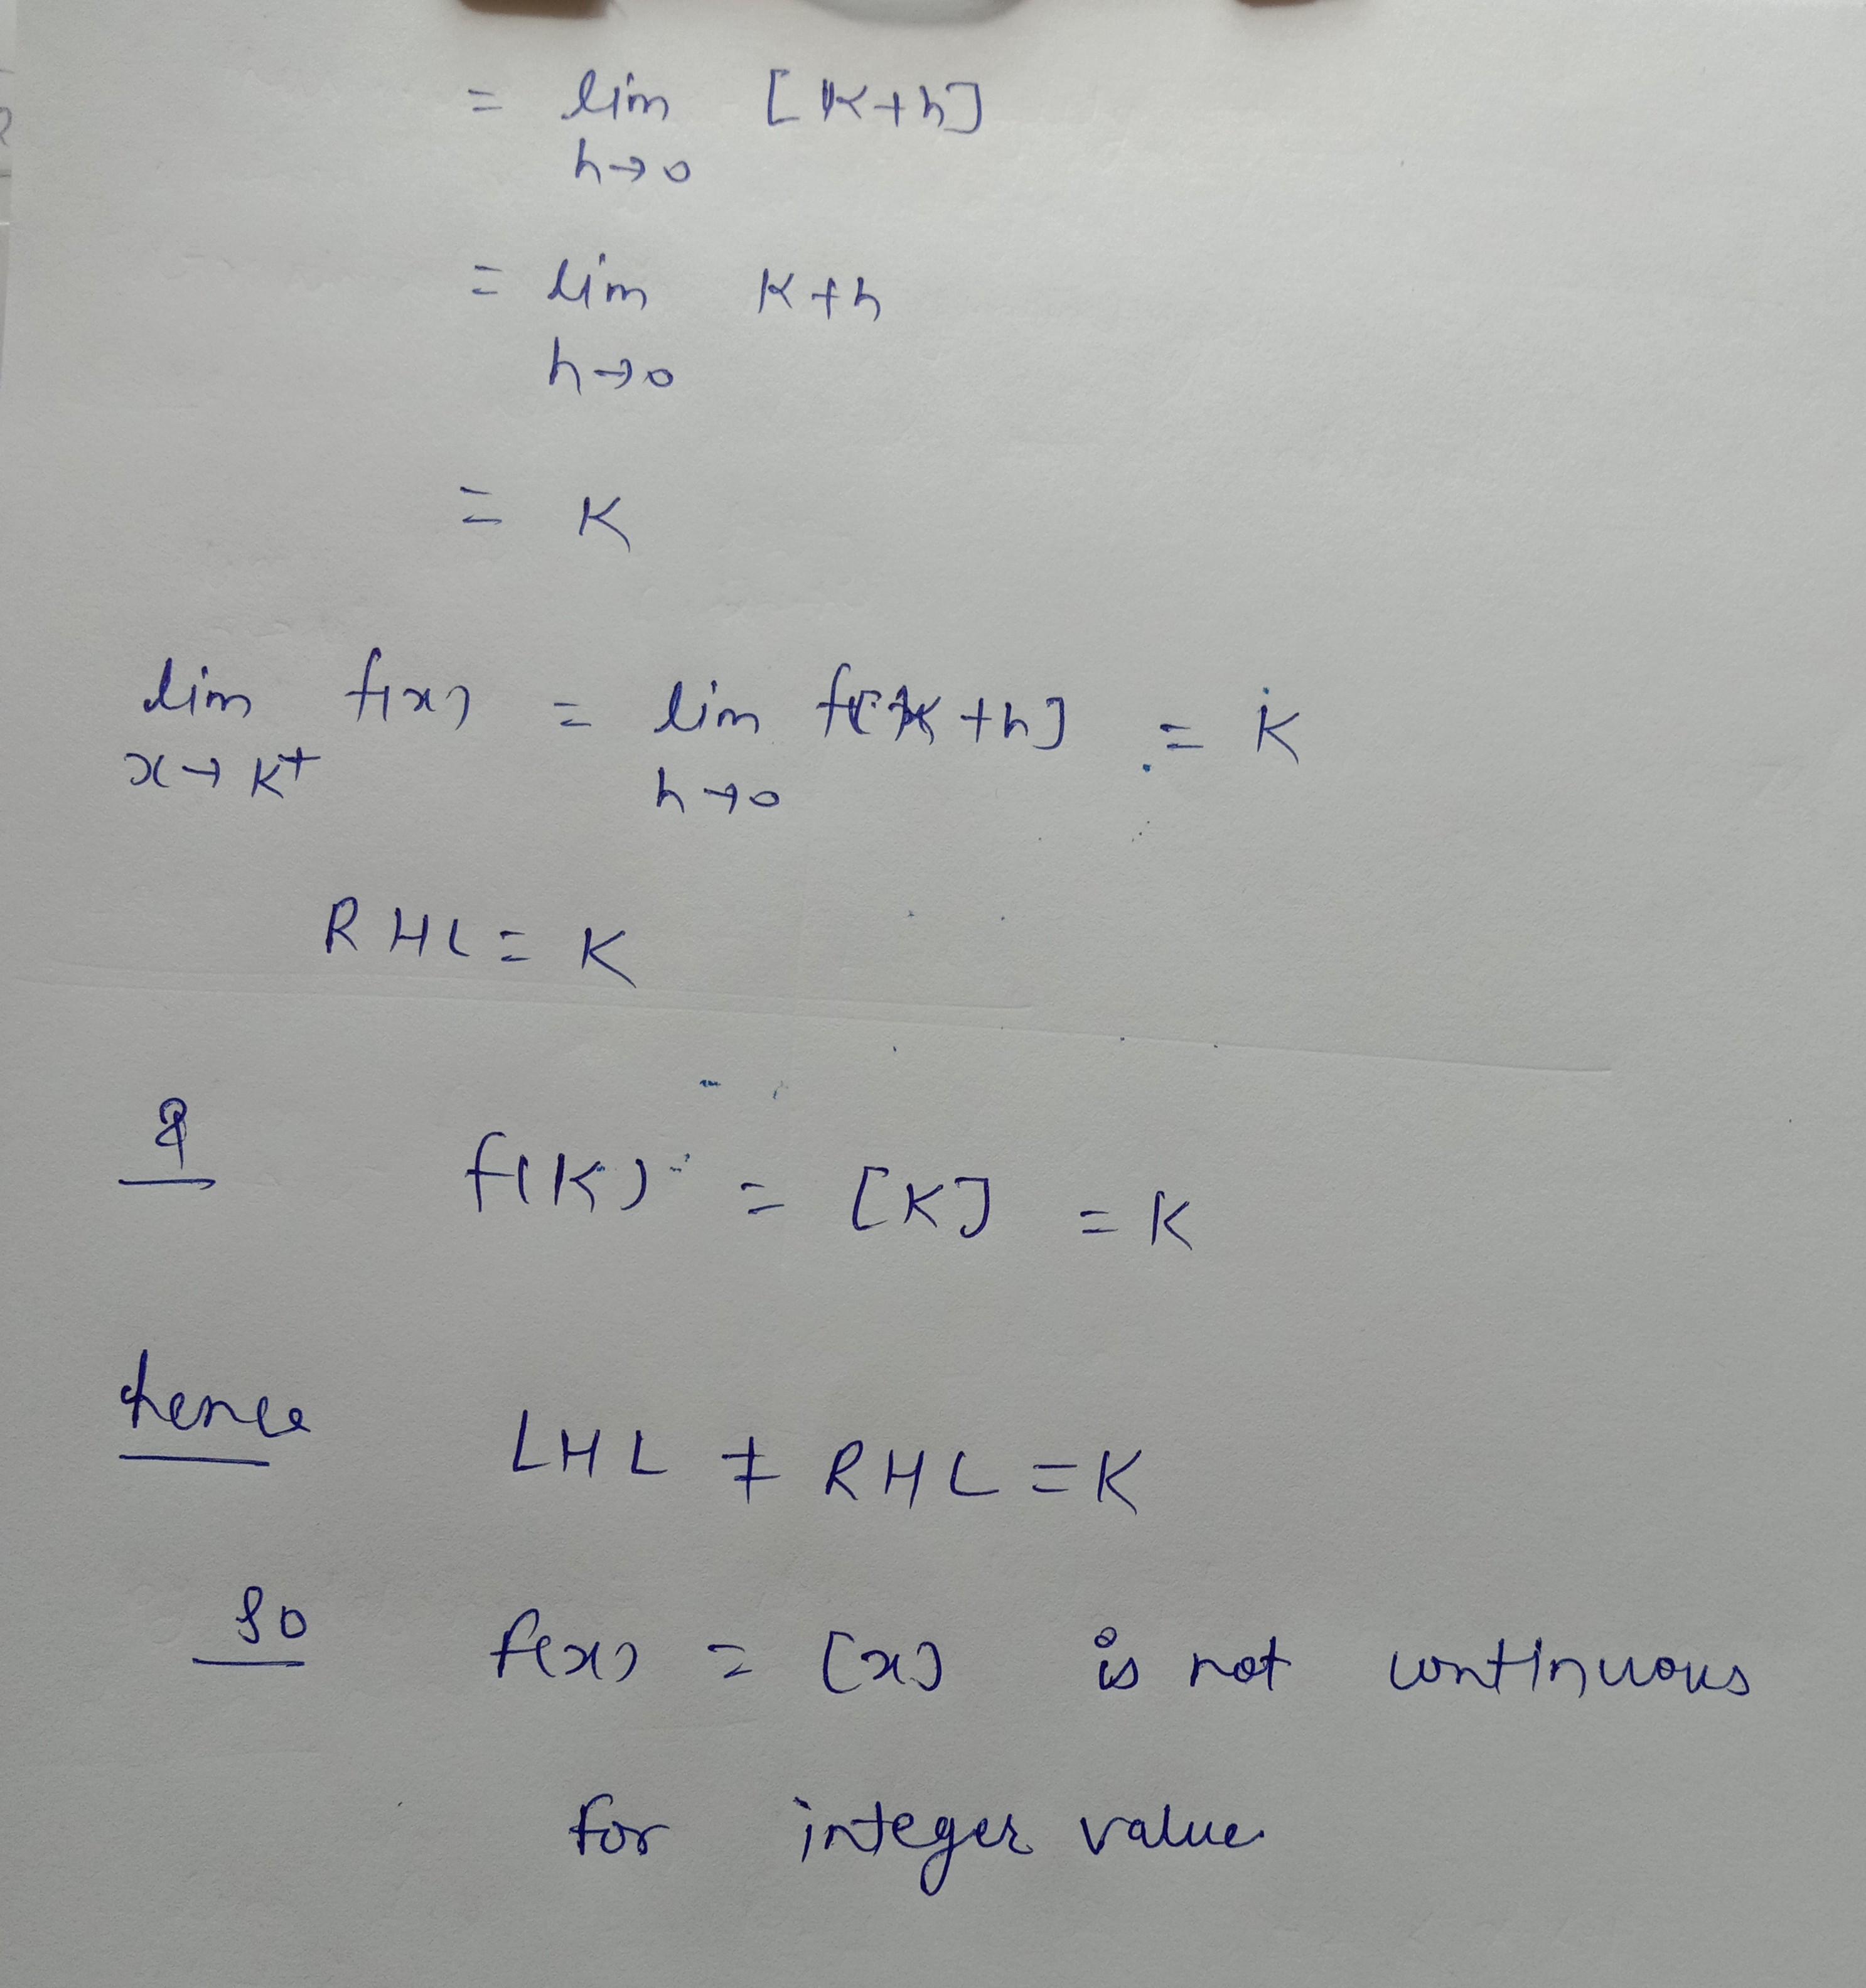 = lim [K+h]
h→0
= lim K+h
h→0
= K
lim f(x) = lim f[K+h] = K
x→K+ h→0
RHL = K
& f(K) = [K] = K
hence LHL ≠ RHL = K
so f(x) = [x] is not continuous
for integer value